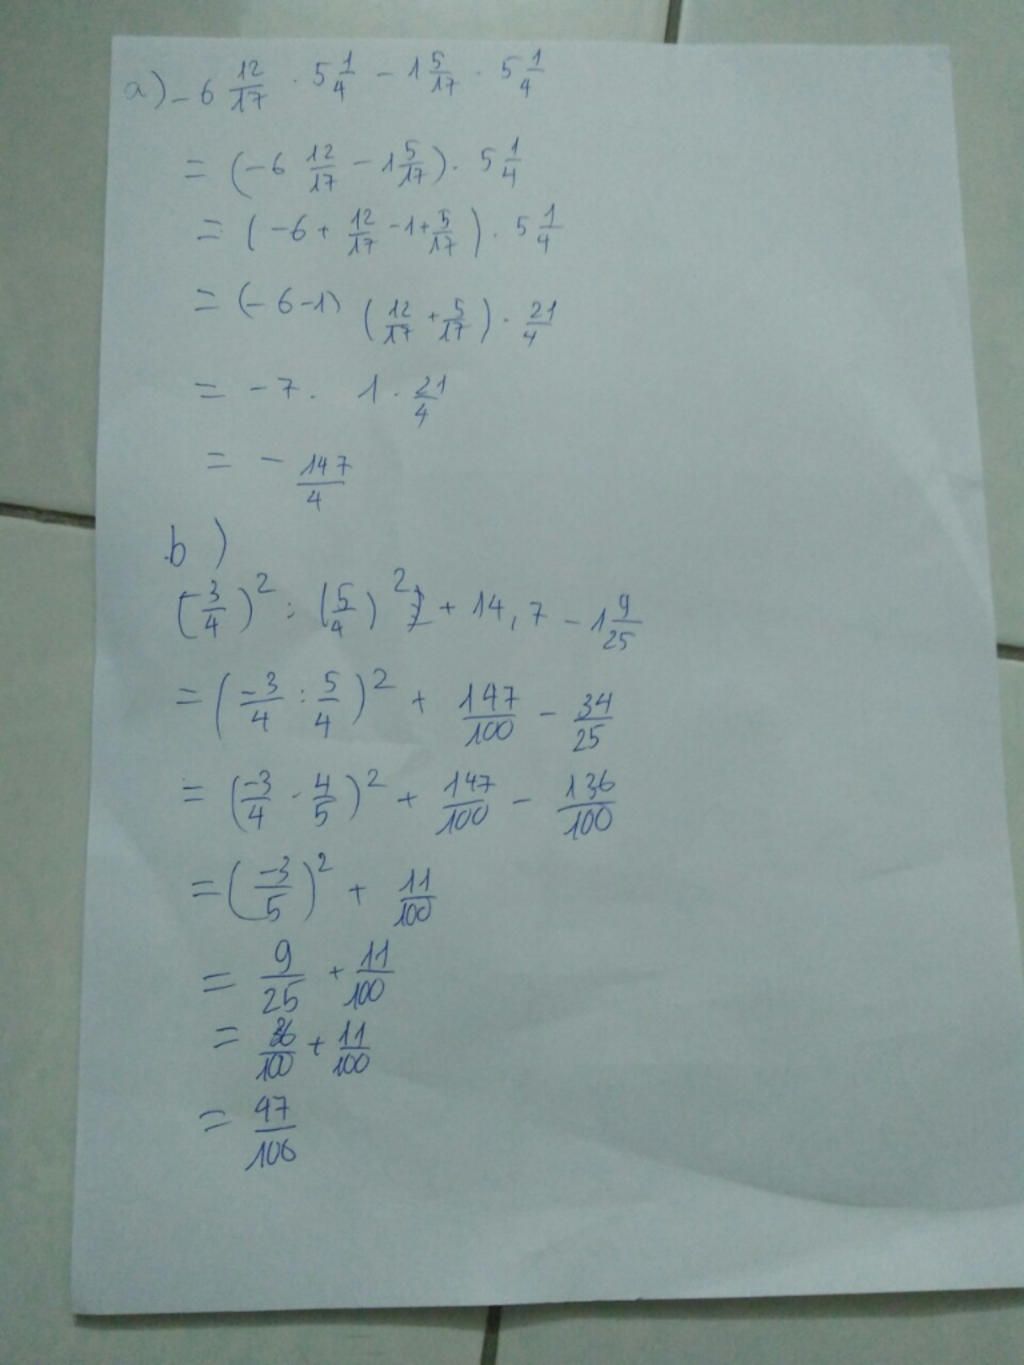 a) -6 12/17 · 5 1/4 - 1 5/17 · 5 1/4
= (-6 12/17 - 1 5/17) · 5 1/4
= (-6 + 12/17 - 1 + 5/17) · 5 1/4
= (-6-1) (12/17 + 5/17) · 21/4
= -7 · 1 · 21/4
= - 147/4
b)
(-3/4)² : (5/4)² + 14,7 - 1 9/25
= (-3/4 : 5/4)² + 147/100 - 34/25
= (-3/4 · 4/5)² + 147/100 - 136/100
= (-3/5)² + 11/100
= 9/25 + 11/100
= 36/100 + 11/100
= 47/100